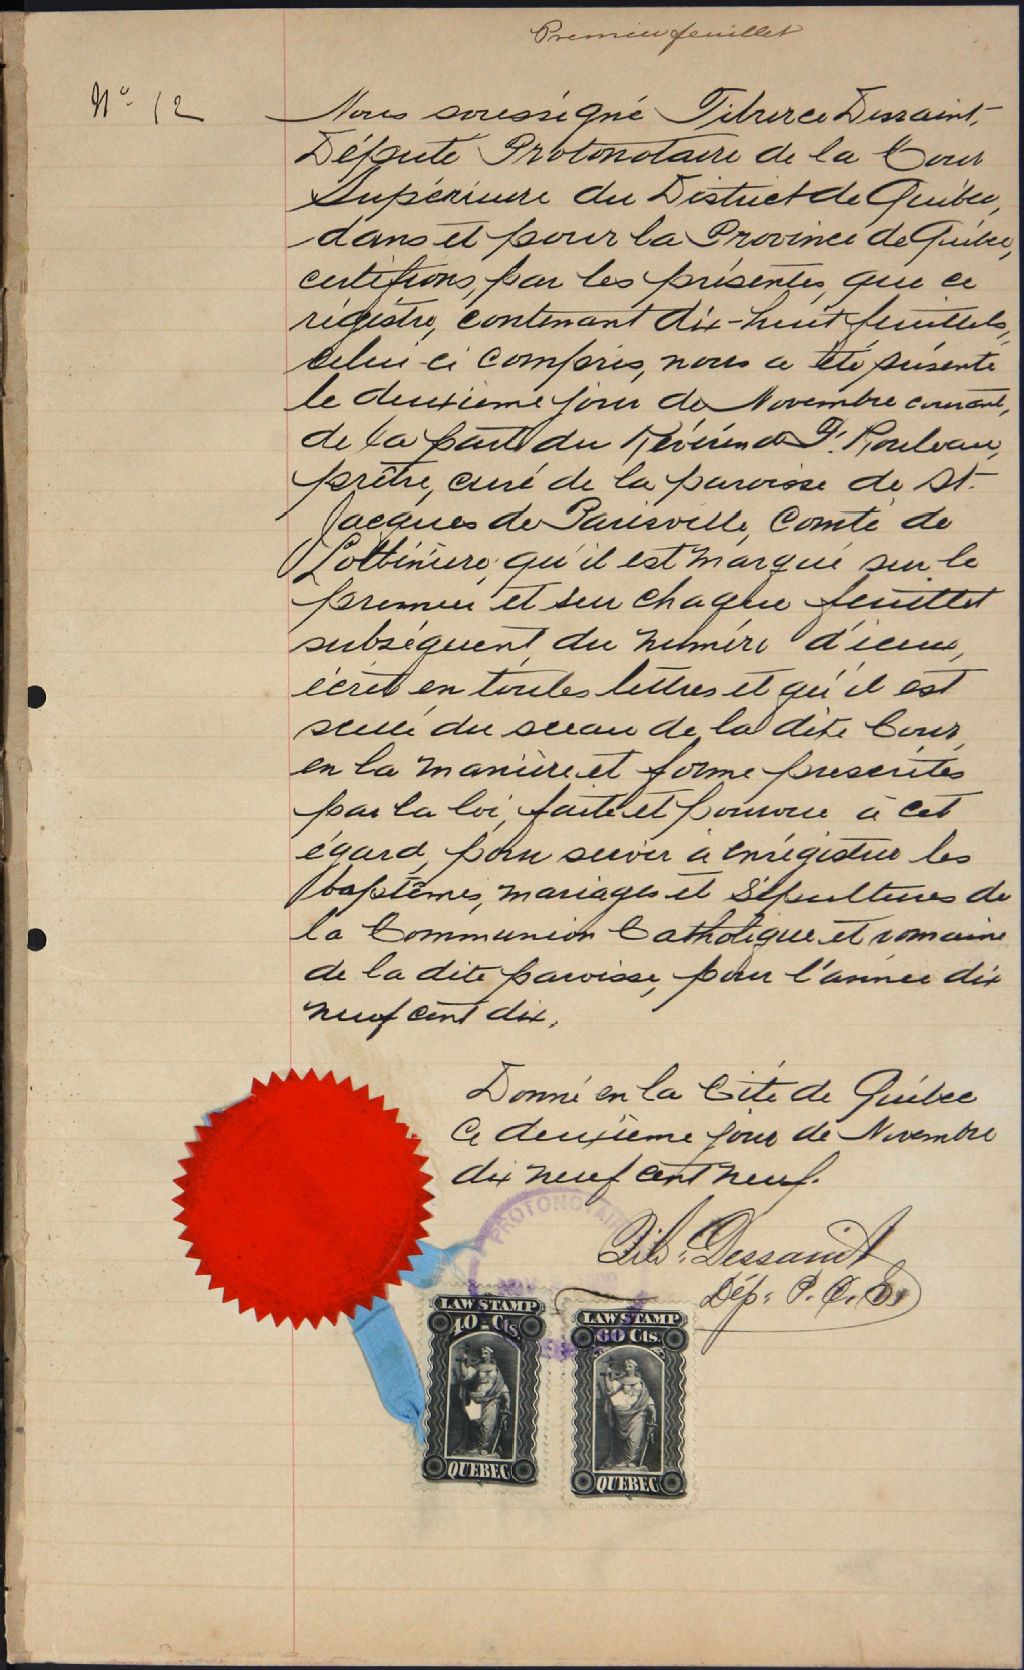 Premier feuillet
No 12
Nous soussigné Tiburce Dessaint,
Député Protonotaire de la Cour
Supérieure du District de Québec,
dans et pour la Province de Québec,
certifions, par les présentes, que ce
régistre, contenant dix-huit feuillets,
celui-ci compris, nous a été présenté
le deuxième jour de Novembre courant,
de la part du Révérend F. Rouleau,
prêtre, curé de la paroisse de St.
Jacques de Parisville, Comté de
Lotbinière; qu'il est marqué sur le
premier et sur chaque feuillet
subséquent du numéro d'iceux,
écrit en toutes lettres et qu'il est
scellé du sceau de la dite Cour,
en la manière et forme prescrites
par la loi, faite et pourvue à cet
égard, pour servir à enrégistrer les
baptêmes, mariages et sépultures de
la Communion Catholique et romaine
de la dite paroisse, pour l'année dix
neuf cent dix.
Donné en la Cité de Québec
ce deuxième jour de Novembre
dix neuf cent neuf.
Tib. Dessaint
Dép. P. C. S.
PROTONOTAIRE
LAW STAMP
40 Cts.
QUEBEC
LAW STAMP
60 Cts.
QUEBEC